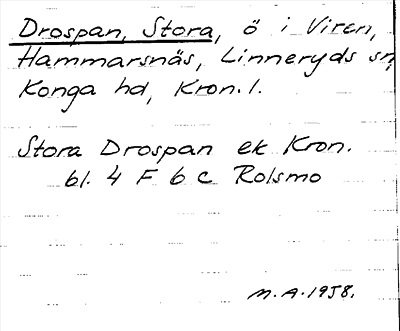 Drospan, Stora, ö i Viren,
Hammarsnäs, Linneryds sn,
Konga hd, Kron. l.
Stora Drospan ek Kron.
bl. 4 F 6 c Rolsmo
M.A. 1958.